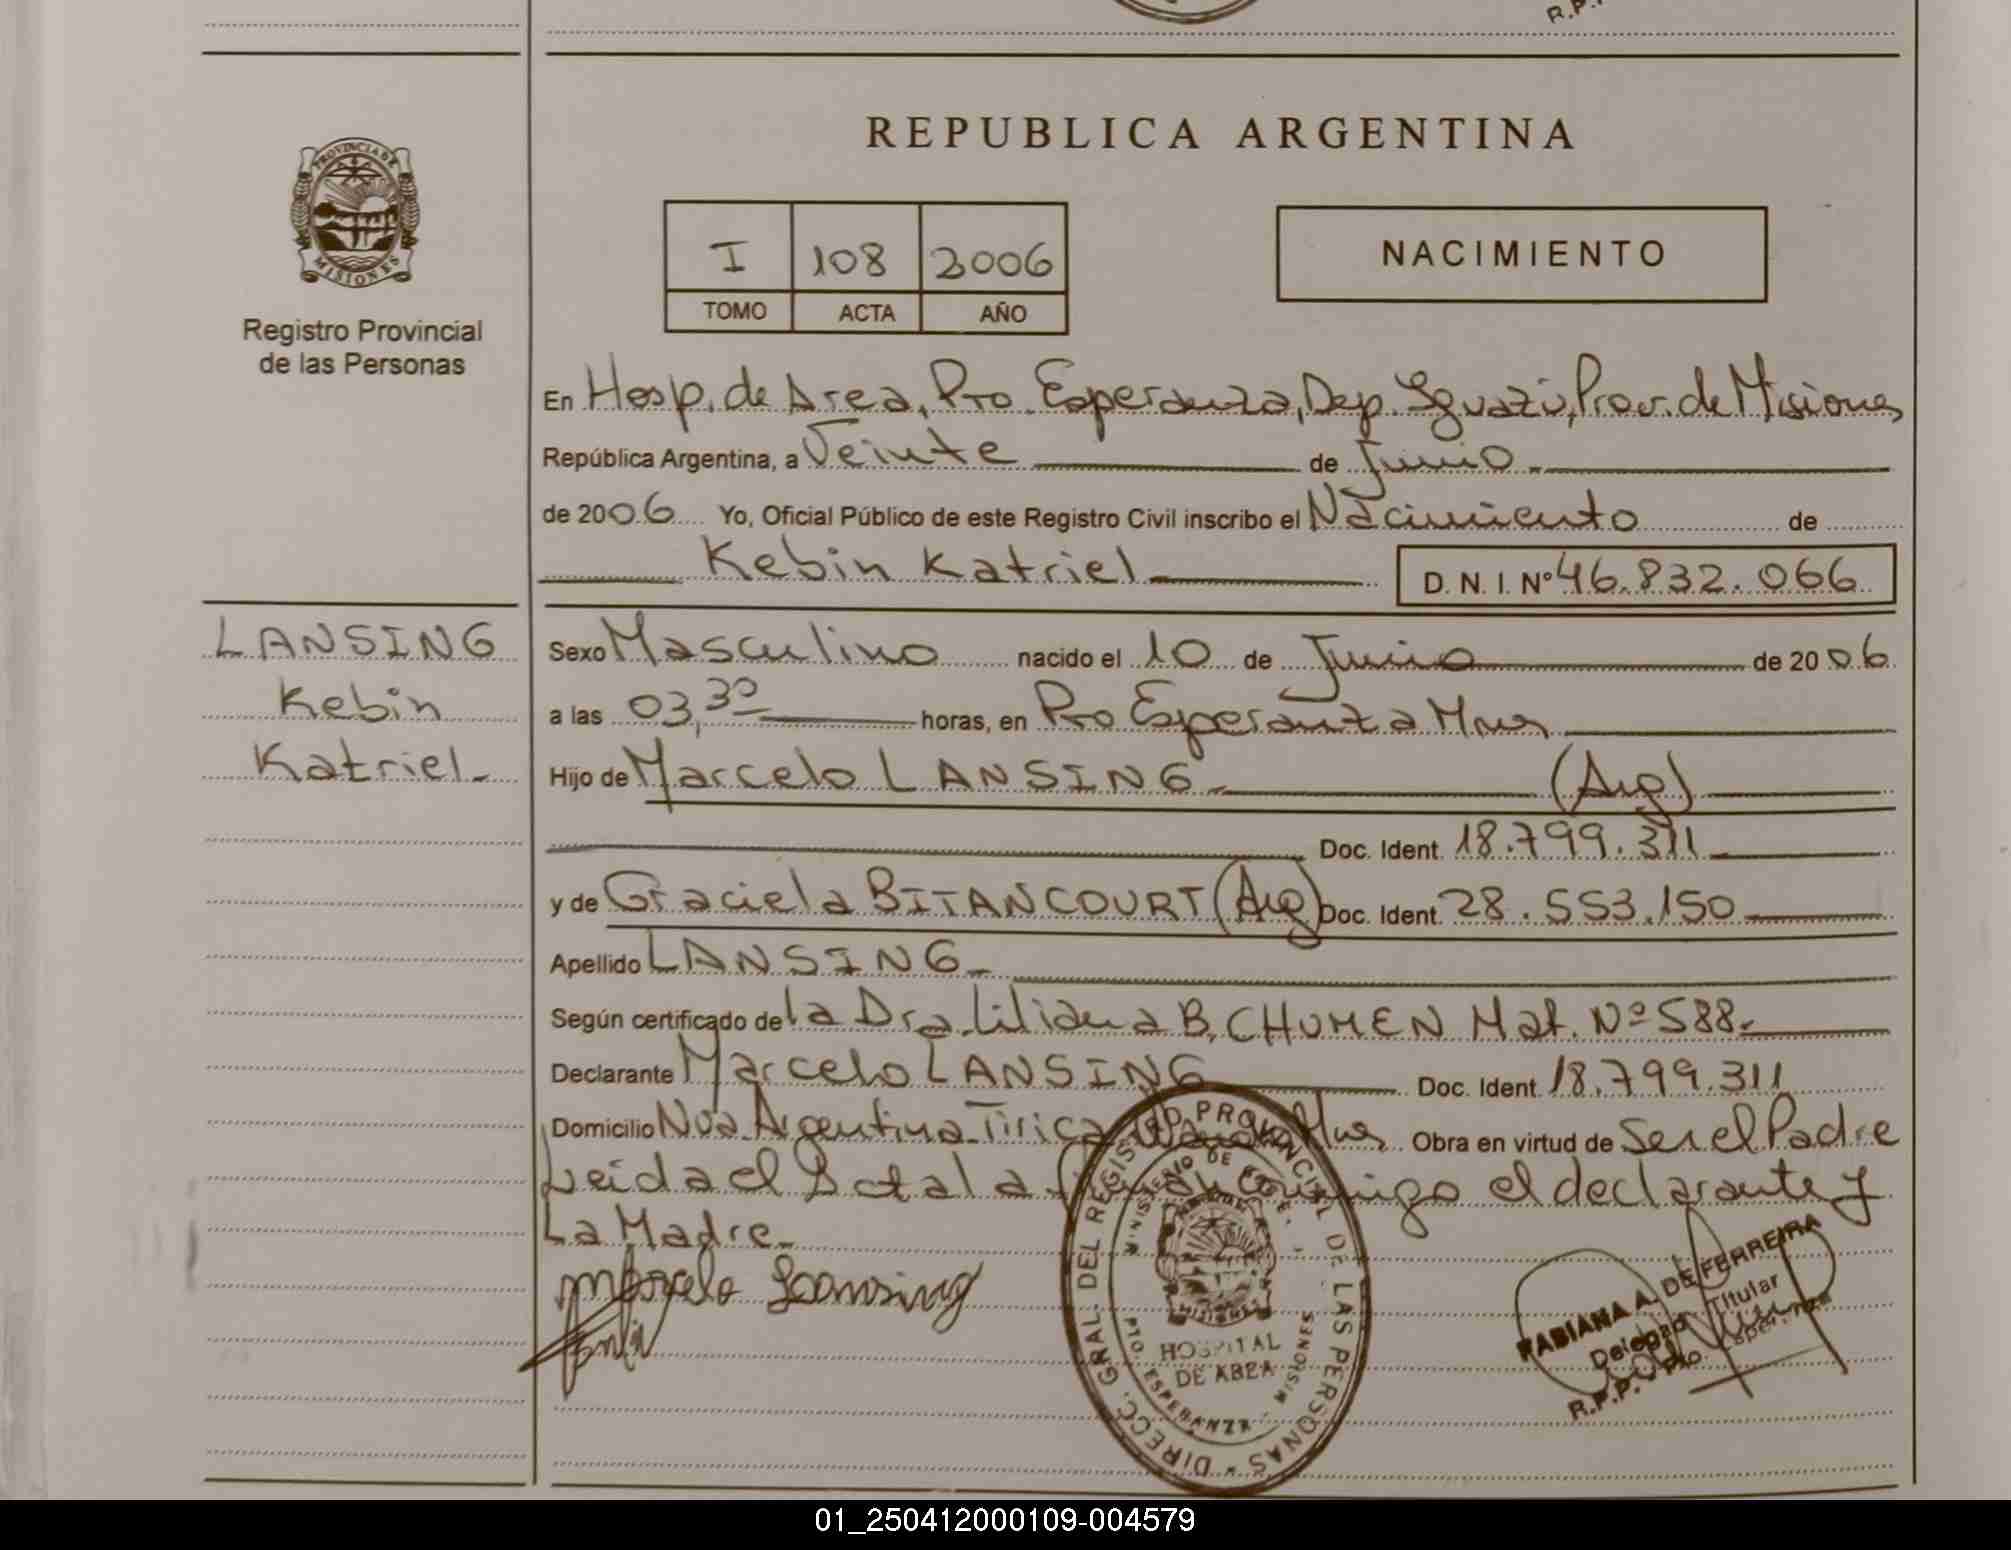 R.P.
REPUBLICA ARGENTINA
PROVINCIA DE
MISIONES
Registro Provincial
de las Personas
I 108 2006
TOMO ACTA AÑO
NACIMIENTO
En Hosp. de Area, Pto. Esperanza, Dep. Iguazú, Prov. de Misiones
República Argentina, a Veinte de Junio
de 2006 Yo, Oficial Público de este Registro Civil inscribo el Nacimiento de
Kebin Katriel D. N. I. Nº 46.832.066
LANSING
Kebin
Katriel
Sexo Masculino nacido el 10 de Junio de 2006
a las 03,30 horas, en Pto Esperanza Mnes
Hijo de Marcelo LANSING (Arg)
Doc. Ident. 18.799.311
y de Graciela BITANCOURT (Arg) Doc. Ident. 28.553.150
Apellido LANSING
Según certificado de la Dra. Liliana B. CHUMEN Mat. Nº 588
Declarante Marcelo LANSING Doc. Ident. 18.799.311
Domicilio Nva Argentina Tirica Mnes Obra en virtud de Ser el Padre
Leida el Acta la conmigo el declarante y
La Madre
Marcelo Lansing
DIRECC. GRAL. DEL REGISTRO PROVINCIAL DE LAS PERSONAS
MINISTERIO DE
MISIONES
HOSPITAL
DE AREA
PTO. ESPERANZA - MISIONES
FABIANA A. DE FERREIRA
Titular
R.P.P. - Pto. Esperanza
01_250412000109-004579